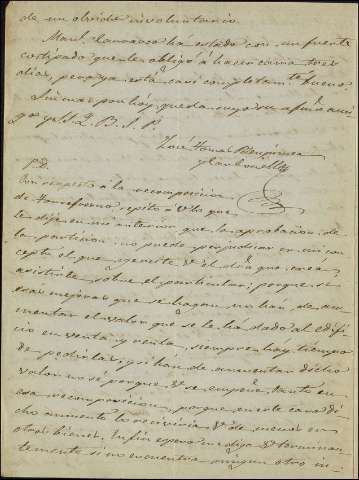 de un olvido involuntario.
Manl. Carrasco há estado con un fuerte
costipado que le obligó á hacer cama tres
dias, pero ya está casi completam.te bueno.
Sin mas por hoy, queda suyo su afmo. ami
go q. S. M. B. J. P.
José Tomas
P.D.
Con respecto á la recomposicion
de repito á V. lo que
le dije en mi anterior que la aprobacion de
la particion no puede perjudicar en mi con
cepto el que ejercite V. el dro. que crea
asistirle sobre el particular; porque si
esas mejoras que se hagan no han de au-
mentar el valor que se le há dado al edifi
cio en venta y renta, siempre hay tiempo
de pedirlas; y si han de aumentar dicho
valor no sé porque V. se empeña tanto en
esa recomposicion, porque en este caso di-
cho aumento lo reciviria V. de menos en
otros bienes. En fin espero me diga V. terminan
temente si no encuentra ningun otro in-